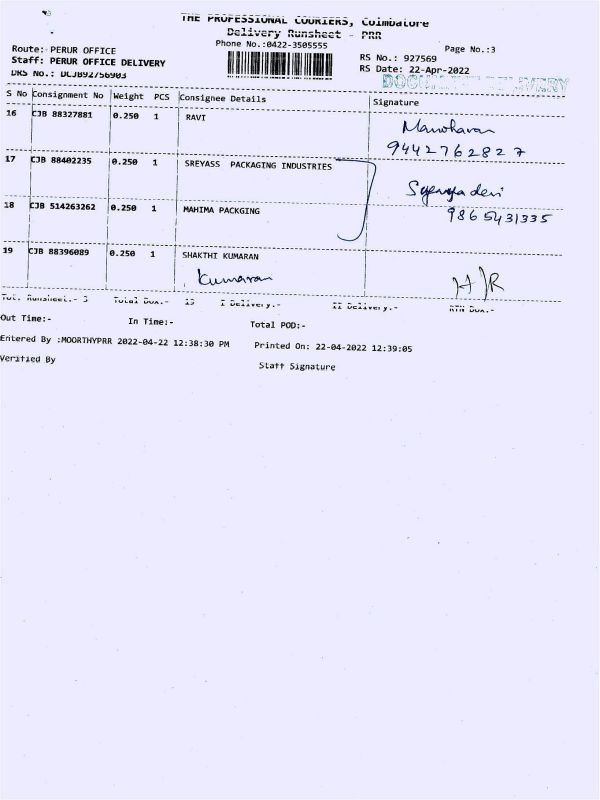 THE PROFESSIONAL COURIERS, Coimbatore
Delivery Runsheet - PRR
Phone No.:0422-3505555
Page No.:3
Route: PERUR OFFICE
RS No.: 927569
Staff: PERUR OFFICE DELIVERY
RS Date: 22-Apr-2022
DRS No.: DCJB92756903
DOCUMENT DELIVERY
S No Consignment No Weight PCS Consignee Details Signature
16 CJB 88327881 0.250 1 RAVI
Manoharan
9442762827
17 CJB 88402235 0.250 1 SREYASS PACKAGING INDUSTRIES
devi
9865431335
18 CJB 514263262 0.250 1 MAHIMA PACKGING
19 CJB 88396089 0.250 1 SHAKTHI KUMARAN
Kumaran
Tot. Runsheet.- 3 Total Dox.- I Delivery.- II Delivery.- RTN Dox.-
Out Time:- In Time:- Total POD:-
Entered By :MOORTHYPRR 2022-04-22 12:38:30 PM Printed On: 22-04-2022 12:39:05
Verified By Staff Signature